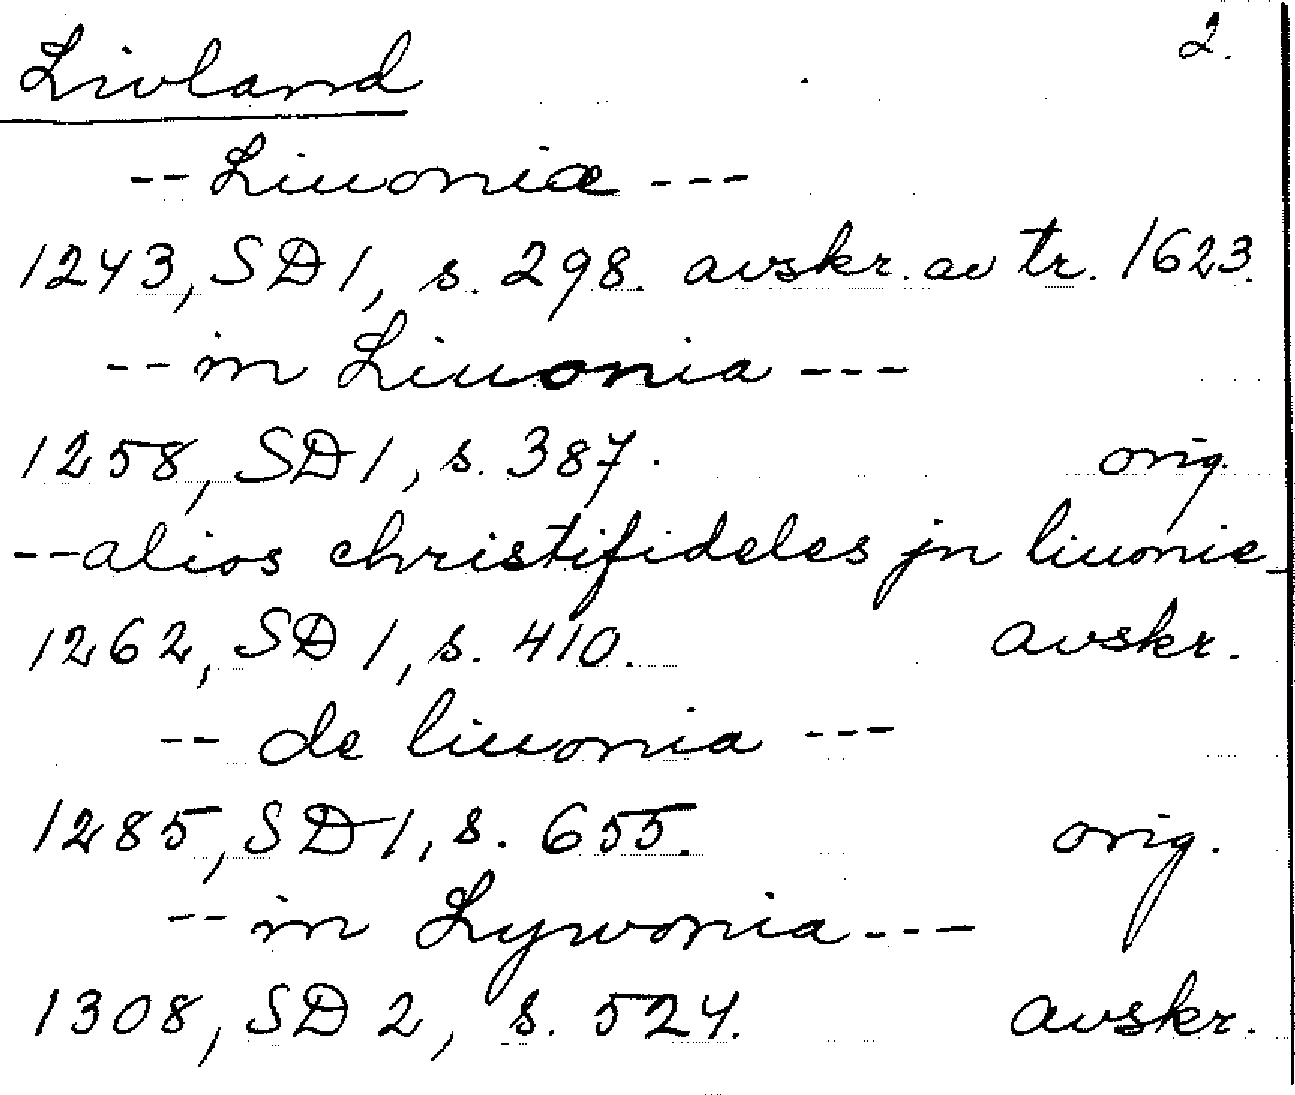 2.
Livland
-- Liuoniæ ---
1243, SD 1, s. 298. avskr. av tr. 1623.
-- in Liuonia ---
1258, SD 1, s. 387. orig.
-- alios christifideles jn liuonie_
1262, SD 1, s. 410. avskr.
-- de liuonia ---
1285, SD 1, s. 655. orig.
-- in Lywonia ---
1308, SD 2, s. 524. avskr.